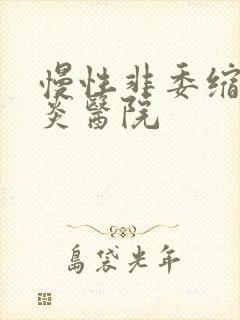 慢性非委缩
炎醫院
島袋光年